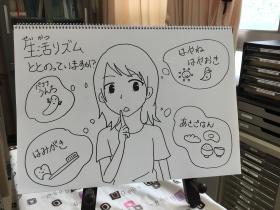 せいかつ
生活リズム
ととのっていますか?
はやね
はやおき
うんち
はみがき
あさごはん